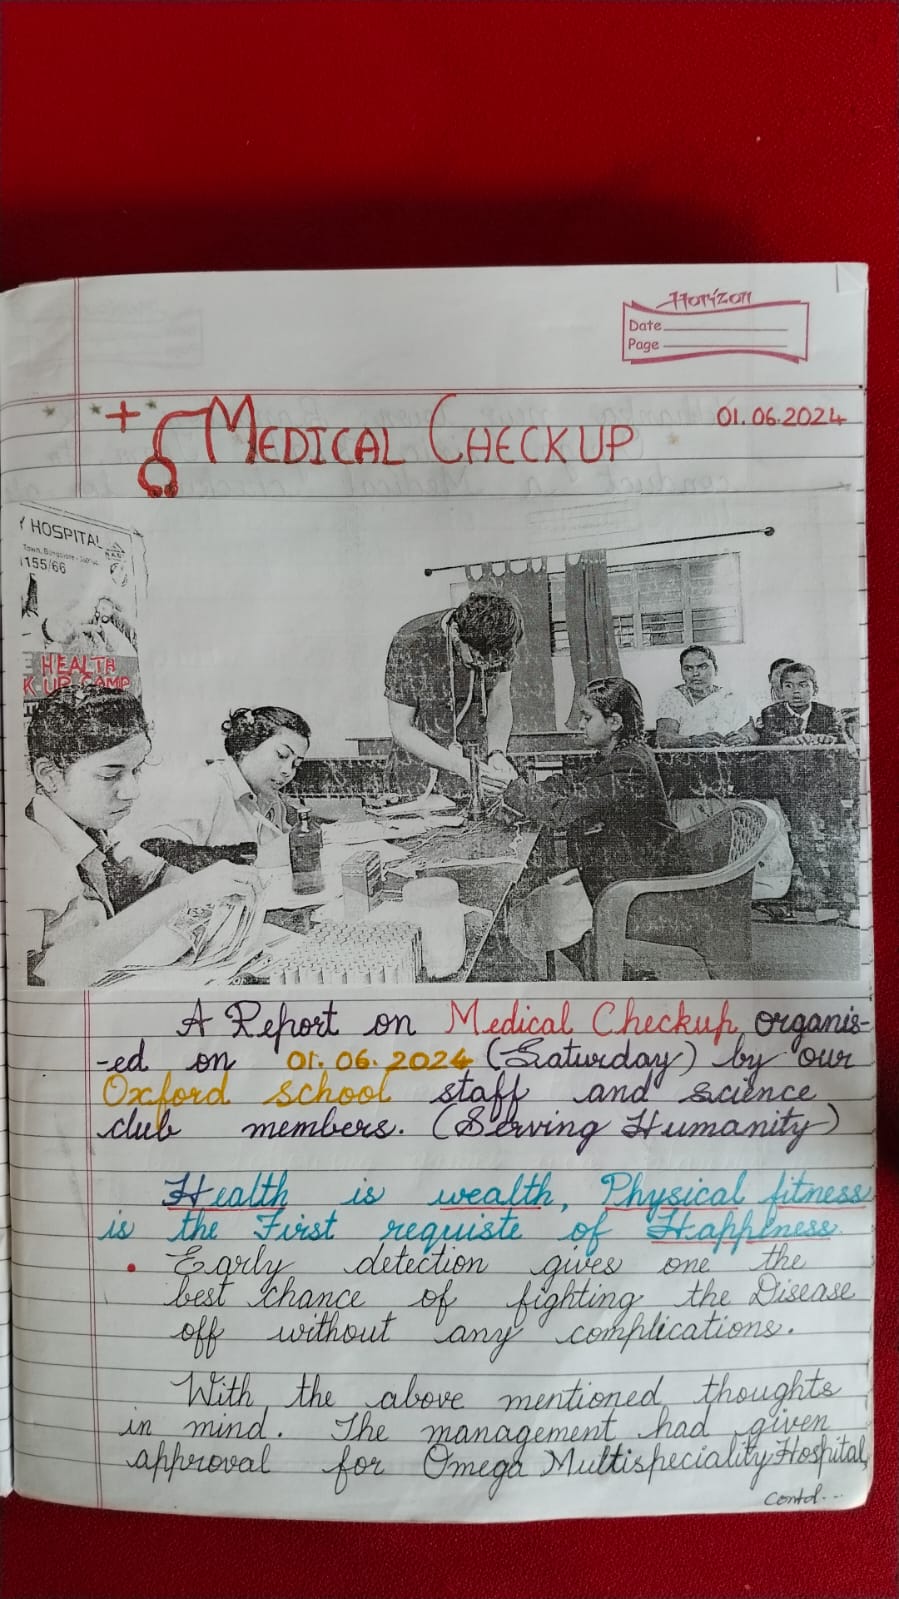 Horizon
Date
Page
01.06.2024
+ MEDICAL CHECKUP
Y HOSPITAL
Town, Bangalore -
155/66
E HEALTH
K-UP CAMP
A Report on Medical Checkup organis-
-ed on 01.06.2024 (Saturday) by our
Oxford school staff and science
club members. (Serving Humanity)
Health is wealth, Physical fitness
is the First requiste of Happiness.
• Early detection gives one the
best chance of fighting the Disease
off without any complications.
With the above mentioned thoughts
in mind. The management had given
approval for Omega Multispeciality Hospital,
Contd...